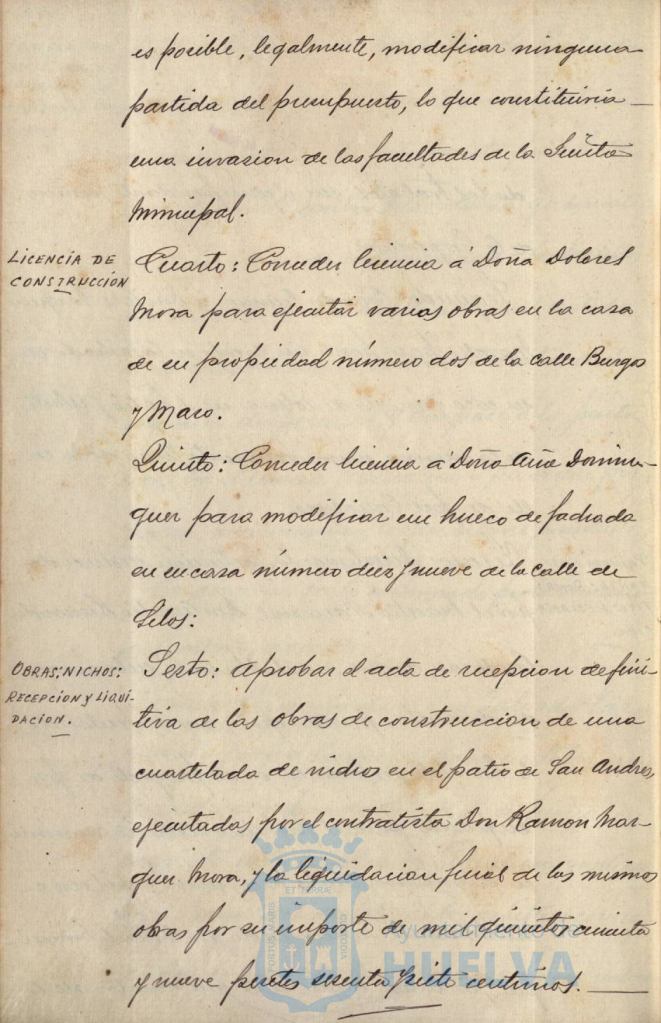 es posible, legalmente, modificar ninguna
partida del presupuesto, lo que constituiria
una invasion de las facultades de la Junta
Municipal.
LICENCIA DE
CONSTRUCCIÓN
Cuarto: Conceder licencia á Doña Dolores
Mora para ejecutar varias obras en la casa
de su propiedad número dos de la calle Burgos
y Maro.
Quinto: Conceder licencia á Doña Ana Domin-
guez para modificar un hueco de fachada
en su casa número diez y nueve de la calle de
OBRAS; NICHOS:
RECEPCION Y LIQUI-
DACION.
Sexto: Aprobar el acta de recepcion defini-
tiva de las obras de construccion de una
cuartelada de nichos en el patio de San Andres,
ejecutadas por el contratista Don Ramon Mar-
quez Mora, y la liquidacion final de las mismas
obras por su importe de mil quinientos cincuenta
y nueve pesetas sesenta y siete centimos.
PORTUS MARIS
ET TERRAE
CUSTODIA
Ayuntamiento de
HUELVA